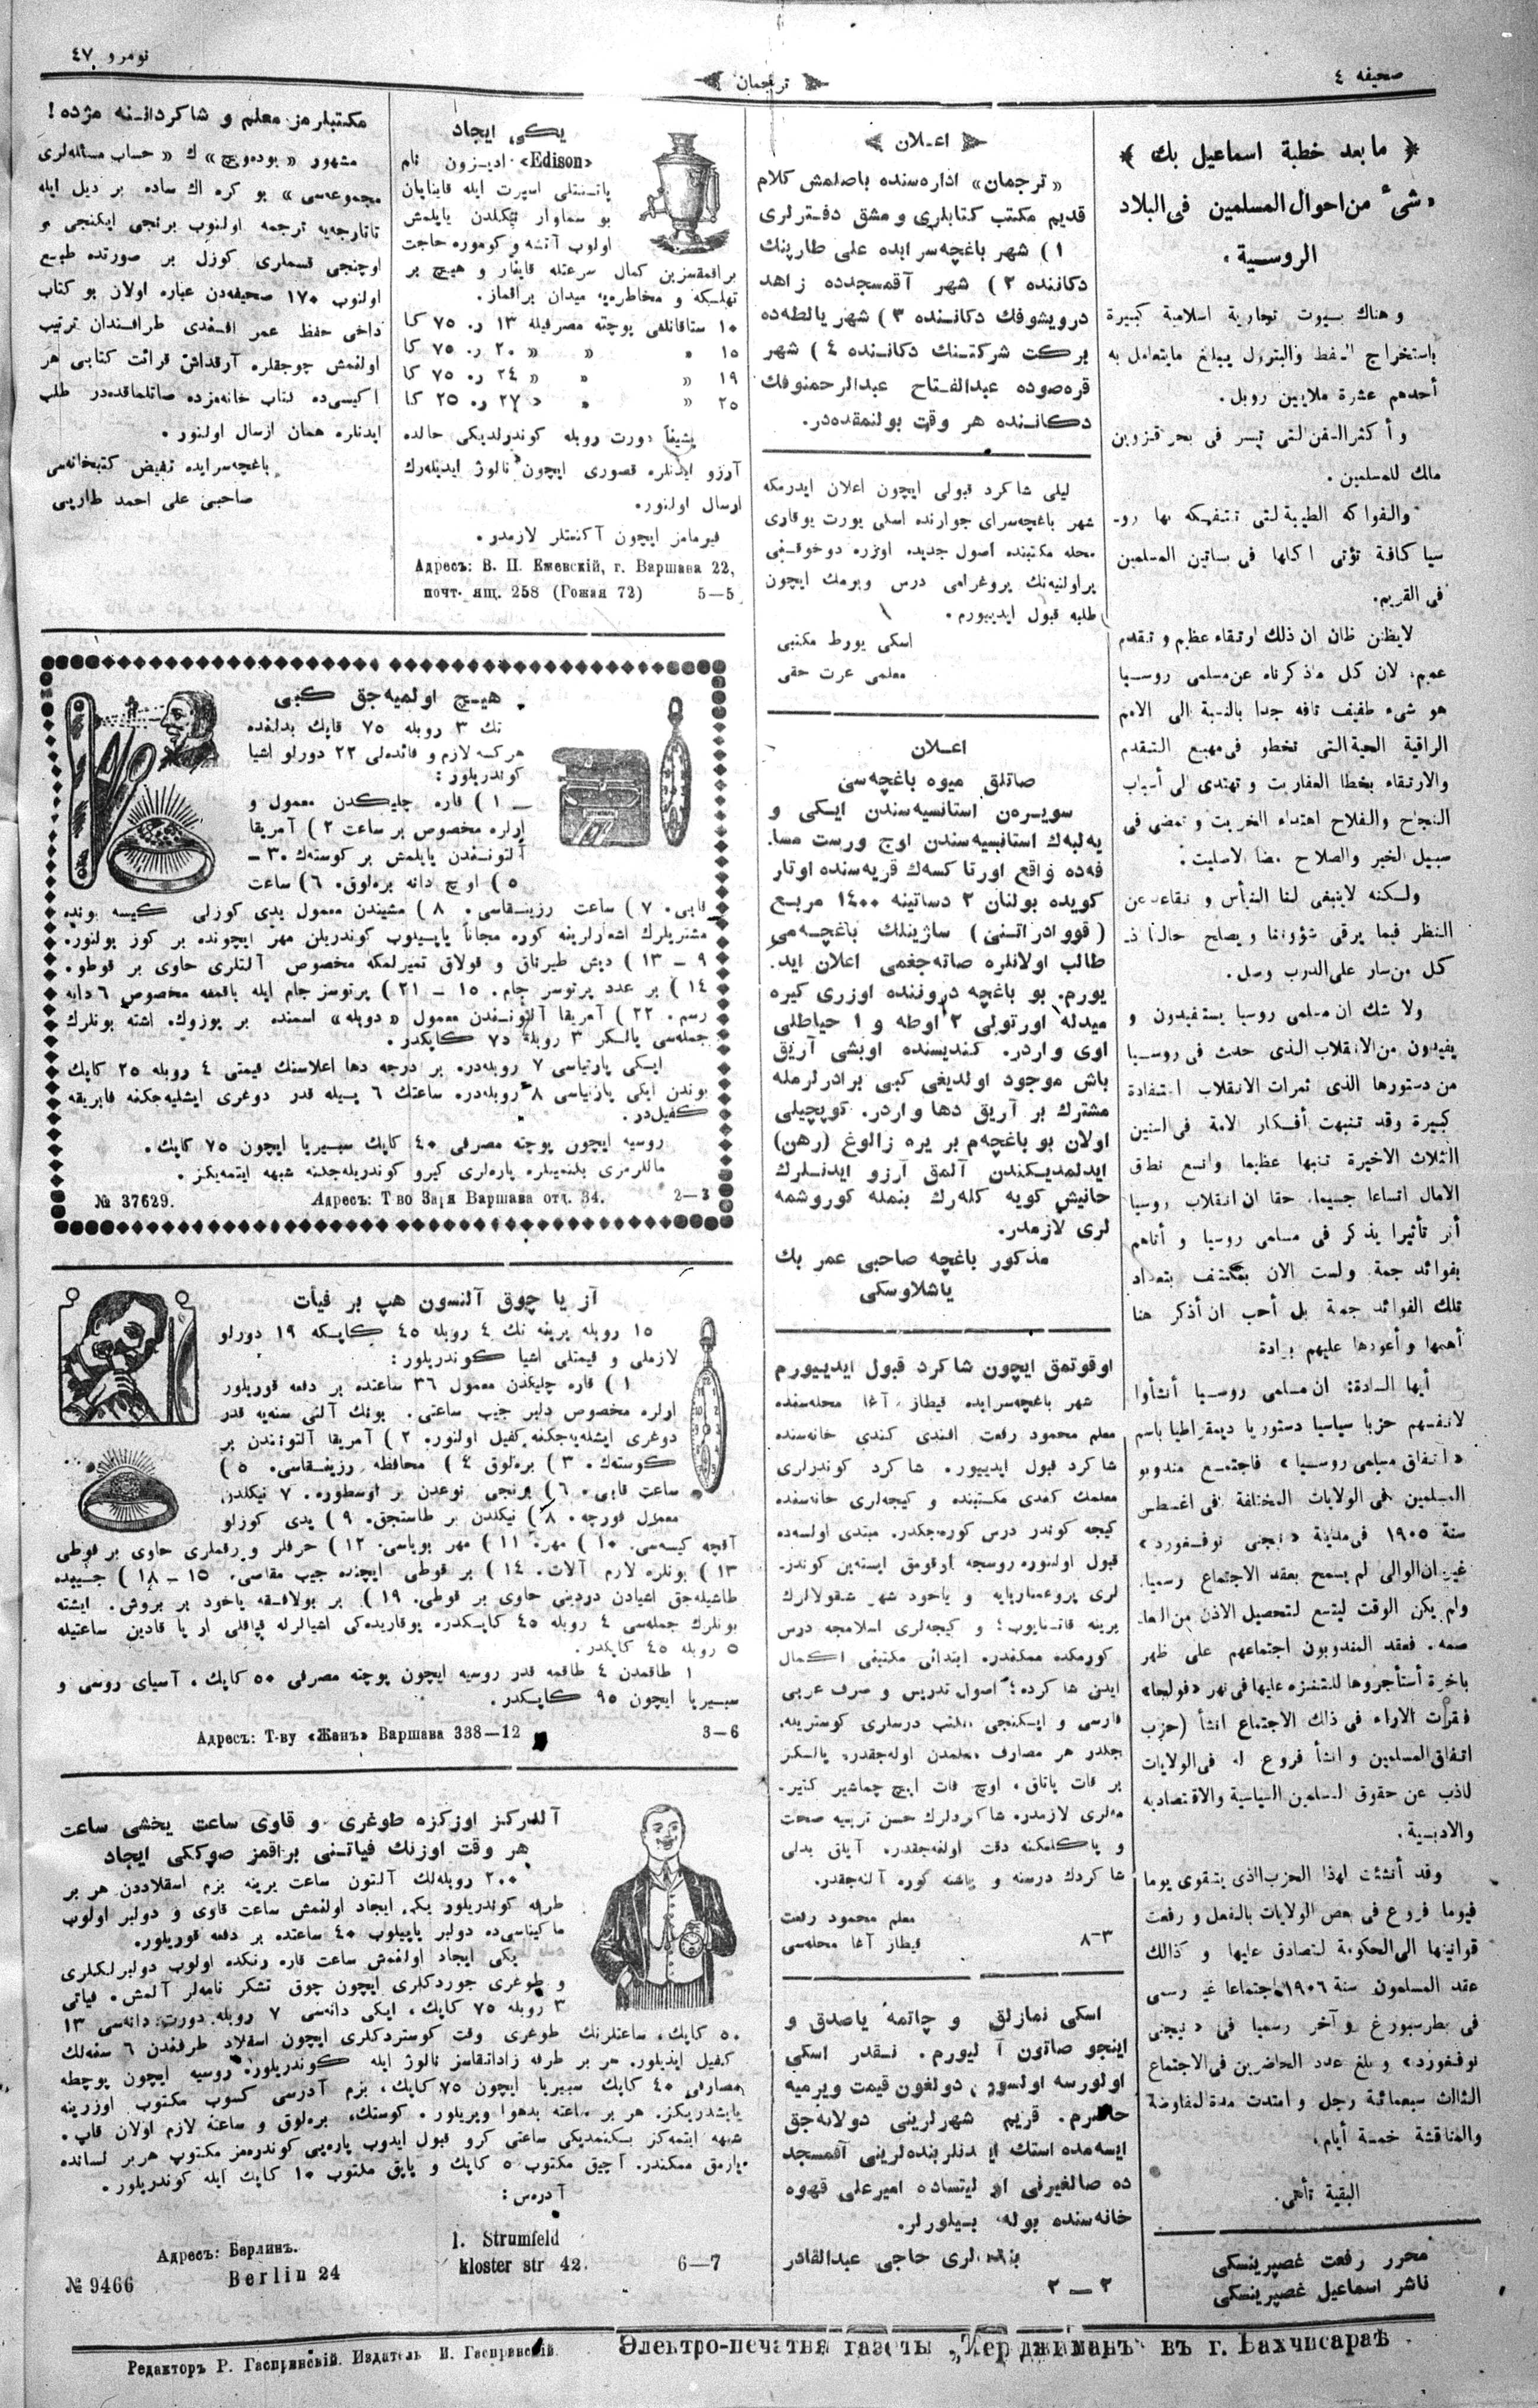 صحیفه ٤
ترجمان
نومرو ٤٧
﴿ ما بعد خطبة اسماعیل بك ﴾
«شئ من احوال المسلمین فی البلاد
الروسـیة .
و هناك بیوت تجاریة اسلامیة كبیرة
باستخراج النفط والبترول یبلغ مایتعامل به
أحدهم عشرة ملایین روبل.
و أكثر السفن التی تسیر فی بحر قزوین
مالك للمسلمین .
والفواكه الطیبة التی تتفكه بها رو-
سیا كافة تؤتی اكلها فی بساتین المسلمین
فی القریم.
لایظنن ظان ان ذلك ارتقاء عظیم و تقدم
عمیم، لان كل ماذكرناه عن مسلمی روسـیا
هو شیء طفیف تافه جدا بالنسبة الی الامم
الراقیة الحیة التی تخطو فی مهیع التقدم
والارتقاء بخطا العفاریت و تهتدی الی أسباب
النجاح والفلاح اهتداء الخریت و تمضی فی
سبیل الخیر والصلاح مضاء الاصلیت.
ولـكنه لاینبغی لنا الیأس و نتقاعد عن
النظر فیما یرقی شؤوننا و یصلح حالنا فـ
كل من سار علی الدرب وصل.
ولا شك ان مسلمی روسیا یستفیدون و
یفیدون من الانقلاب الذی حدث فی روسـیا
من دستورها الذی ثمرات الانقلاب استفادة
كبیرة وقد تنبهت أفـكار الامة فی السنین
الثلاث الاخیرة تنبها عظیما واتسع نطاق
الامال اتساعا جسیما. حقا ان انقلاب روسیا
أثر تأثیرا یذكر فی مسلمی روسیا و أتاهم
بفوائد جمة ولست الان بمكتف بتعداد
تلك الفوائد جمة بل أحب ان أذكر هنا
أهمها و أعودها علیهم
أیها السادة: ان مسلمی روسـیا أنشأوا
لانفسهم حزبا سیاسیا دستوریا دیمقراطیا باسم
«اتـفاق مسلمی روسـیا» فاجتمع مندوبو
المسلمین فی الولایات المختلفة فی اغسطس
سنة ١٩٠٥ فی مدینة «نیجنی نوفـغورد»
غیر ان الوالی لم یسمح بعقد الاجتماع رسمیا.
ولم یكن الوقت لیتسع لتحصیل الاذن من العا-
صمة. فعقد المندوبون اجتماعهم علی ظهر
باخرة أستأجروها للتنزه علیها فی نهر «فولجا»
فقرات الاراء فی ذلك الاجتماع انشأ (حزب
اتفاق المسلمین و انشأ فروع له فی الولایات
لذب عن حقوق المسلمین السیاسیة والاقتصادیة
والادبـیة.
وقد أنشئت لهذا الحزب الذی یتقوی یوما
فیوما فروع فی بعض الولایات بالفعل و رفعت
قوانینها الی الحكومة لتصادق علیها و كذالك
عقد المسلمون سنة ١٩٠٦ اجتماعا غیر رسمی
فی بطرسبورغ و آخر رسمیا فی «نیجنی
نوفـغورد» و بلغ عدد الحاضرین فی الاجتماع
الثالث سبعمائة رجل و امتدت مدة المفاوضة
والمناقشة خمسة أیام.
البقیة تأتی.
محرر رفعت غصپرینسكی
ناشر اسماعیل غصپرینسكی
اعـلان
«ترجمان» اداره‌سنده باصلمش كلام
قدیم مكتب كتابلری و مشق دفـترلری
١) شهر باغچه‌سرایده علی طارپینك
دكاننده ٢) شهر آقمسجدده زاهد
درویشوفك دكانـنده ٣) شهر یالطه‌ده
بركت شركتـنك دكانـنده ٤) شهر
قره‌صوده عبدالفـتاح عبدالرحمنوفك
دكانـنده هر وقت بولنمقده‌در.
لیلی شاكرد قبولی ایچون اعلان ایدرمكه
شهر باغچه‌سرای جوارنده اسكی یورت یوقاری
محله مكتبنده اصول جدیده اوزره دوخوفـنی
پراولنیه‌نك پروغرامی درس ویرمك ایچون
طلبه قبول ایدییورم.
اسكی یورط مكتبی
معلمی عزت حقی
اعـلان
صاتلق میوه باغچه‌سی
سویـره‌ن استانسیه‌سندن ایـكی و
یه‌لبه‌ك استانسیه‌سندن اوچ ورست مسا-
فه‌ده واقع اورتا كسه‌ك قریه‌سنده اوتار
كویده بولنان ٢ دساتینه ١٤٠٠ مربـع
(قووادراتـنی) ساژینلك باغچـه‌می
طالب اولانلره صاته‌جغمی اعلان ایـد-
یورم. بو باغچه دروننده اوزری كیره
میدله اورتولی ٢ اوطه و ١ حیاطلی
اوی واردر. كندیسنده اوبشی آریق
باش موجود اولدیغی كبی برادرلرمله
مشترك بر آریق دها واردر. كوپچیلی
اولان بو باغچه‌م بر یره زالوغ (رهن)
ایدلمدیـكندن آلمق آرزو ایدنـلرك
حانیش كویه كله‌رك بنمله كوروشمه
لری لازمدر.
مذكور باغچه صاحبی عمر بك
یاشلاوسكی
اوقوتمق ایچون شاكرد قبول ایدییورم
شهر باغچه‌سرایده قیطاز آغا محله‌سنده
معلم محمود رفعت افندی كندی خانه‌سنده
شاكرد قبول ایدییور. شاكرد كوندزلری
معلمك كندی مكتبنده و كیجه‌لری خانه‌سنده
كیجه كوندز درس كوره‌جكدر. مبتدی اولسه‌ده
قبول اولنوره روسجه اوقومق ایسته‌ین كوندز-
لری پروغمنازیایه و یاخود شهر شقولالرك
برینه قاتـنایوب؛ و كیجه‌لری اسلامجه درس
كورمكده ممكندر. ابتدائی مكتبنی اكمال
ایدن شاكرده؛ اصول تدریس و صرف عربی
فارسی و ایـكنجی مكتب درسلری كوستریله-
جكدر هر مصارف معلمدن اوله‌جقدر. یالـكز
بر قات یاتاق، اوچ قات ایچ چماشیر كتیر-
مه‌لری لازمدر. شاكردلرك حسن تربیه صحت
و پاكلـكنه دقت اولنه‌جقدر. آیلق بدلی
شاكردك درسنه و یاشنه كوره آلنه‌جقدر.
معلم محمود رفعت
قیطاز آغا محله‌سی
٣-٨
اسكی نمازلق و چاتمه یاصدق و
اینجو صاتون آلیورم. نـقدر اسكی
اولورسه اولسون دولغون قیمت ویرمیه
حاضرم. قریم شهرلرینی دولانه‌جق
ایسه‌مده استك ایدنلر بنده‌لرینی آقمسجد
ده صالغیرنی اولیتساده امیرعلی قهوه
خانه‌سنده بوله بـیلورلر.
بنده‌لری حاجی عبدالقادر
٢ — ٢
یـكی ایجاد
«Edison» ادیـزون نام
پاتـنتلی اسپرت ایله قاینایان
بو سماوار نیكلدن یاپلمش
اولوب آتشه و كوموره حاجت
براقمقسزین كمال سرعتله قاینار و هیچ بر
تهلـكه و مخاطره‌یه میدان براقماز.
١٠ ستاقانلغی پوچته مصرفیله ١٣ ر. ٧٥ كا
١٥ » » » ٢٠ ر. ٧٥ كا
١٩ » » » ٢٤ ر. ٧٥ كا
٢٥ » » » ٢٧ ر. ٢٥ كا
پشیناً دورت روبله كوندرلدیكی حالده
آرزو ایدنلره قصوری ایچون نالوژ ایدیله‌رك
ارسال اولنور.
فیرمامز ایچون آكنتلر لازمدر.
Адресъ: В. П. Ежевскій, г. Варшава 22,
почт. ящ. 258 (Гожая 72) 5—5
مكتبلرمز معلم و شاكردانـنه مژده!
مشهور «یوده‌ویچ»ك «حساب مسئله‌لری
مجموعه‌سی» بو كره اك ساده بر دیل ایله
تاتارجه‌یه ترجمه اولنوب برنجی ایكنجی و
اوچنجی قسملری كوزل بر صورتده طبع
اولنوب ١٧٠ صحیفه‌دن عباره اولان بو كتاب
داخی حفظ عمر افـندی طرافـندان ترتیب
اولنمش چوجقلره آرقداش قرائت كتابی هر
ایكیسی‌ده كتاب خانه‌مزده صاتلماقده‌در طلب
ایدنلره همان ارسال اولنور.
باغچه‌سرایده تفیض كتبخانه‌سی
صاحبی علی احمد طارپی
هیـچ اولمیه‌جق كبی
تك ٣ روبله ٧٥ قاپك بدلنده
هركسه لازم و فائده‌لی ٢٢ دورلو اشیا
كوندریلور:
— ١) قاره چلیكدن معمول و
ارلره مخصوص بر ساعت ٢) آمریقا
آلتونـندن یاپلمش بر كوستك ٣٠ —
٥) اوچ دانه بره‌لوق. ٦) ساعت
قابی. ٧) ساعت رزینـقاسی. ٨) مشیندن معمول یدی كوزلی كیسه بونده
مشتریلرك اشعارلرینه كوره مجاناً یاپیلوب كوندریلن مهر ایچونده بر كوز بولنور.
٩ – ١٣) دیش طیرناق و قولاق تمیزلمكه مخصوص آلتلری حاوی بر قوطو.
١٤) بر عدد پرتوسز جام. ١٥ – ٢١) پرتوسز جام ایله باقمغه مخصوص ٦ دانه
رسم. ٢٢) آمریقا آلتونـندن معمول «دوبله» اسمنده بر یوزوك. اشته بونلرك
جمله‌سی یالـكز ٣ روبله ٧٥ كاپكدر.
ایـكی پارتیاسی ٧ روبله‌در. بر درجه دها اعلاسنك قیمتی ٤ روبله ٢٥ كاپك
بوندن ایكی پارتیاسی ٨ روبله‌در. ساعتك ٦ ییله قدر دوغری ایشلیه‌جكنه فابریقه
كفیل‌در.
روسیه ایچون پوچته مصرفی ٤٠ كاپك سیبیریا ایچون ٧٥ كاپك.
ماللرمزی بكنمینلره پاره‌لری كیرو كوندریله‌جكنه شبهه ایتمه‌یكز.
№ 37629. Адресъ: Т-во Заря Варшава отд. 34. 2—3
آز یا چوق آلنسون هپ بر فیأت
١٥ روبله یرینه تك ٤ روبله ٤٥ كاپـكه ١٩ دورلو
لازملی و قیمتلی اشیا كوندریلور:
١) قاره چلیكدن معمول ٣٦ ساعتده بر دفعه قوریلور
ارلره مخصوص دلبر جیب ساعتی. بونك آلتی سنه‌یه قدر
دوغری ایشله‌یه‌جكنه كفیل اولنور. ٢) آمریقا آلتونندن بر
كوسته‌ك. ٣) بره‌لوق ٤) محافظه رزینـقاسی. ٥)
ساعت قابی. ٦) برنجی نوعدن بر اوسطوره. ٧ نیكلدن
معمول فورچه. ٨) نیكلدن بر طاستجق. ٩) یدی كوزلو
آقچه كیسه‌سی. ١٠) مهر. ١١) مهر بویاسی. ١٢) حرفلر و رقملری حاوی بر قوطی
١٣) بونلره لازم آلات. ١٤) بر قوطی ایچنده جیب مقاسی. ١٥ – ١٨) جـیبده
طاشیله‌جق اشیادن دردینی حاوی بر قوطی. ١٩) بر بولافـقه یاخود بر بروش. ایشته
بونلرك جمله‌سی ٤ روبله ٤٥ كاپـكدره یوقاریده‌كی اشیالرله قپاقلی ار یا قادین ساعتیله
٥ روبله ٤٥ كاپكدر.
١ طاقمدن ٤ طاقمه قدر روسیه ایچون پوچته مصرفی ٥٠ كاپك. آسیای روسی و
سیـبیریا ایچون ٩٥ كاپـكدر.
Адресъ: Т-ву «Женъ» Варшава 338—12 3—6
آلدركز اوزكزه طوغری و قاوی ساعت یخشی ساعت
هر وقت اوزنك فیاتـنی براقمز صوككی ایجاد
٢٠٠ روبله‌لك آلتون ساعت یرینه بزم اسقلاددن هر بر
طرفه كوندریلور یكی ایجاد اولنمش ساعت قاوی و دولبر اولوب
ماكیناسی‌ده دولبر یاپیلوب ٤٠ ساعتده بر دفعه قوریلور.
یكی ایجاد اولنمش ساعت قاره رنكده اولوب دولبرلكلری
و طوغری جوردكلری ایچون چوق تشكر نامه‌لر آلمش. فیاتی
٣ روبله ٧٥ كاپك، ایكی دانه‌سی ٧ روبله. دورت دانه‌سی ١٣
٥٠ كاپك. ساعتلرنك طوغری وقت كوستردكلری ایچون اسقلاد طرفـندن ٦ سنه‌لك
كفیل ایدیلور. هر بر طرفه زاداتقاسز نالوژ ایله كوندریلور. روسیه ایچون پوچطه
مصارفی ٤٠ كاپك سیبیریا ایچون ٧٥ كاپك، بزم آدرسی كسوب مكتوب اوزرینه
یابشدریكز. هر بر ساعته بدهوا ویریلور. كوستك، بره‌لوق و ساعته لازم اولان قاپ.
شبهه ایتمه‌كز بـكنمدیكی ساعتی كرو قبول ایدوب پاره‌یی كوندره‌مز مكتوب هر بر لسانده
یازمق ممكندر. آچیق مكتوب ٥ كاپك و یاپق مكتوب ١٠ كاپك ایله كوندریلور.
آدرس:
Адресъ: Берлинъ. I. Strumfeld
№ 9466 Berlin 24 kloster str 42. 6—7
Редакторъ Р. Гаспринскій. Издатель И. Гаспринскій.
Электро-печатня газеты „Терджиманъ“ въ г. Бахчисараѣ.